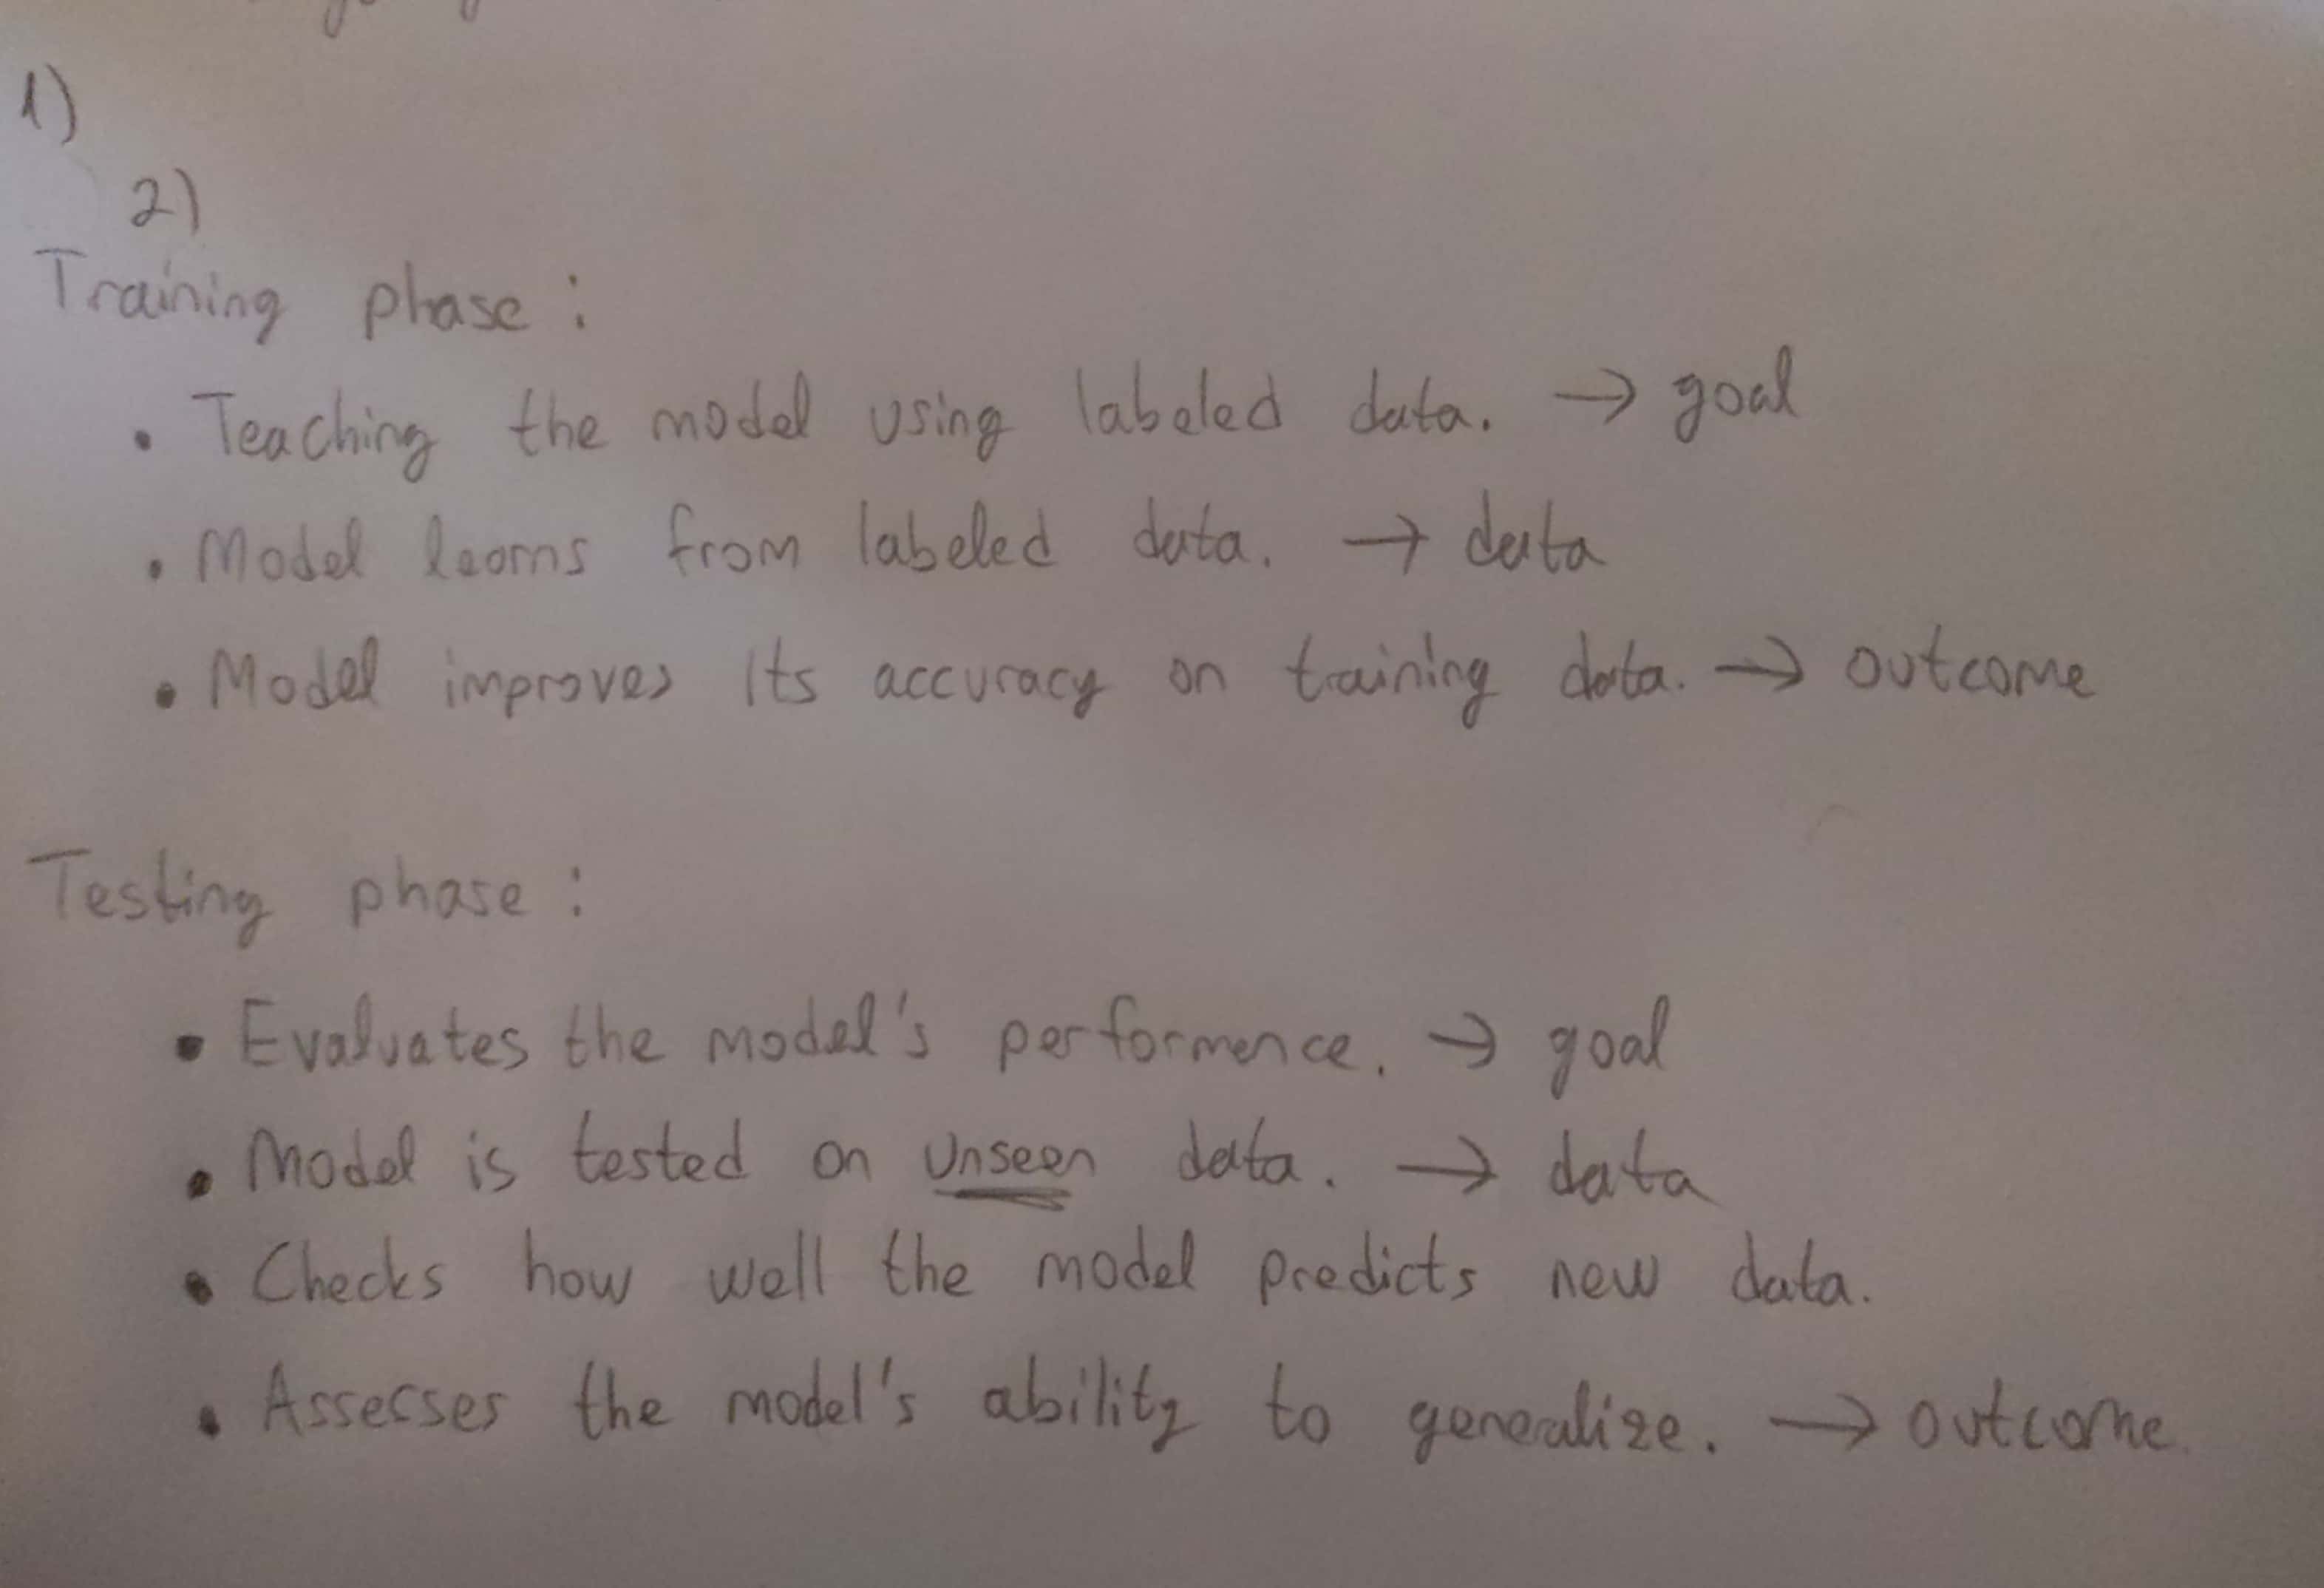 1)
2)
Training phase :
• Teaching the model using labeled data. → goal
• Model learns from labeled data. → data
• Model improves its accuracy on training data. → outcome
Testing phase :
• Evaluates the model's performence. → goal
• Model is tested on unseen data. → data
• Checks how well the model predicts new data.
• Assesses the model's ability to generalize. → outcome